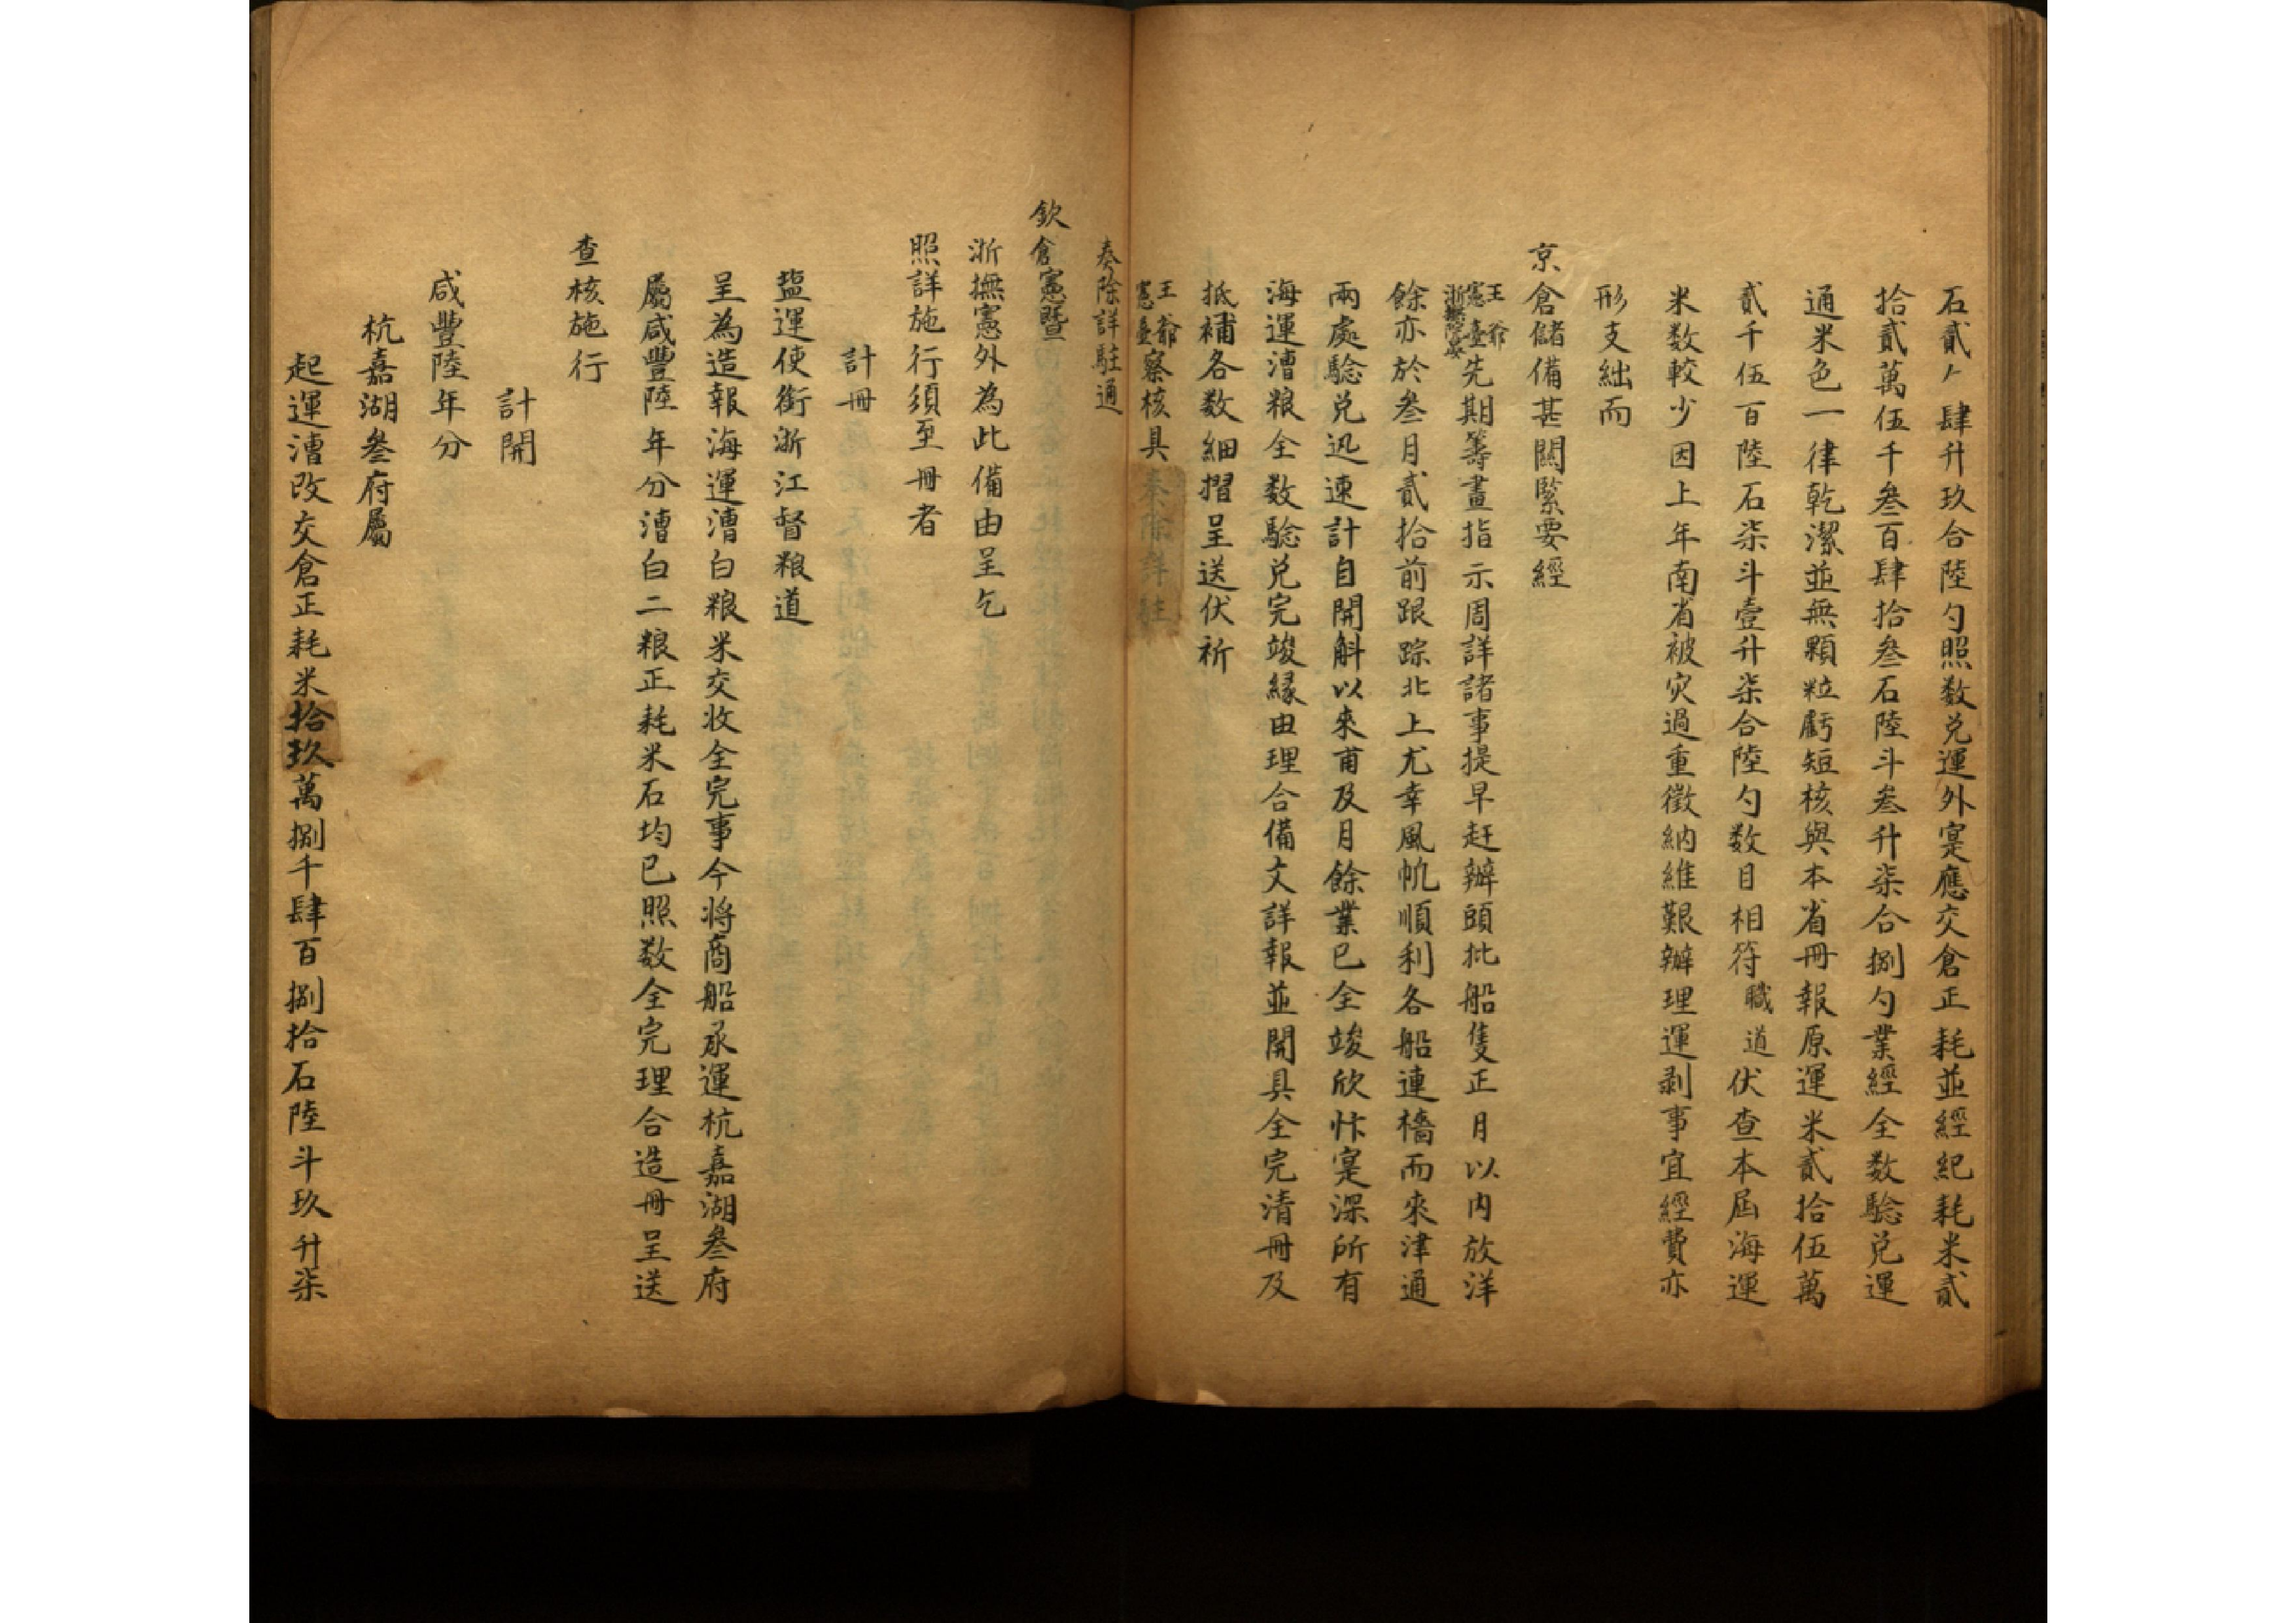 石貳斗肆升玖合陸勺照数兑運外寔應交倉正耗並經紀耗米貳
拾貳萬伍千叁百肆拾叁石陸斗叁升柒合捌勺業經全数騐兑運
通米色一律乾潔並無顆粒虧短核與本省冊報原運米貳拾伍萬
貳千伍百陸石柒斗壹升柒合陸勺数目相符職道伏查本屆海運
米数較少因上年南省被灾過重徵納維艱辦理運剥事宜經費亦
形支絀而
京倉儲備甚關緊要經
王爺
憲臺
浙撫院晏
先期籌畫指示周詳諸事提早赶辦頭批船隻正月以内放洋
餘亦於叁月貳拾前跟踪北上尤幸風帆順利各船連檣而來津通
兩處騐兑迅速計自開斛以來甫及月餘業已全竣欣忭寔深所有
海運漕粮全数騐兑完竣緣由理合備文詳報並開具全完清冊及
抵補各数細摺呈送伏祈
王爺
憲臺
察核具
奏除詳駐通
欽倉憲暨
浙撫憲外為此備由呈乞
照詳施行須至冊者
計冊
盐運使銜浙江督粮道
呈為造報海運漕白粮米交收全完事今将商船承運杭嘉湖叁府
屬咸豐陸年分漕白二粮正耗米石均已照数全完理合造冊呈送
查核施行
計開
咸豐陸年分
杭嘉湖叁府屬
起運漕改交倉正耗米拾玖萬捌千肆百捌拾石陸斗玖升柒